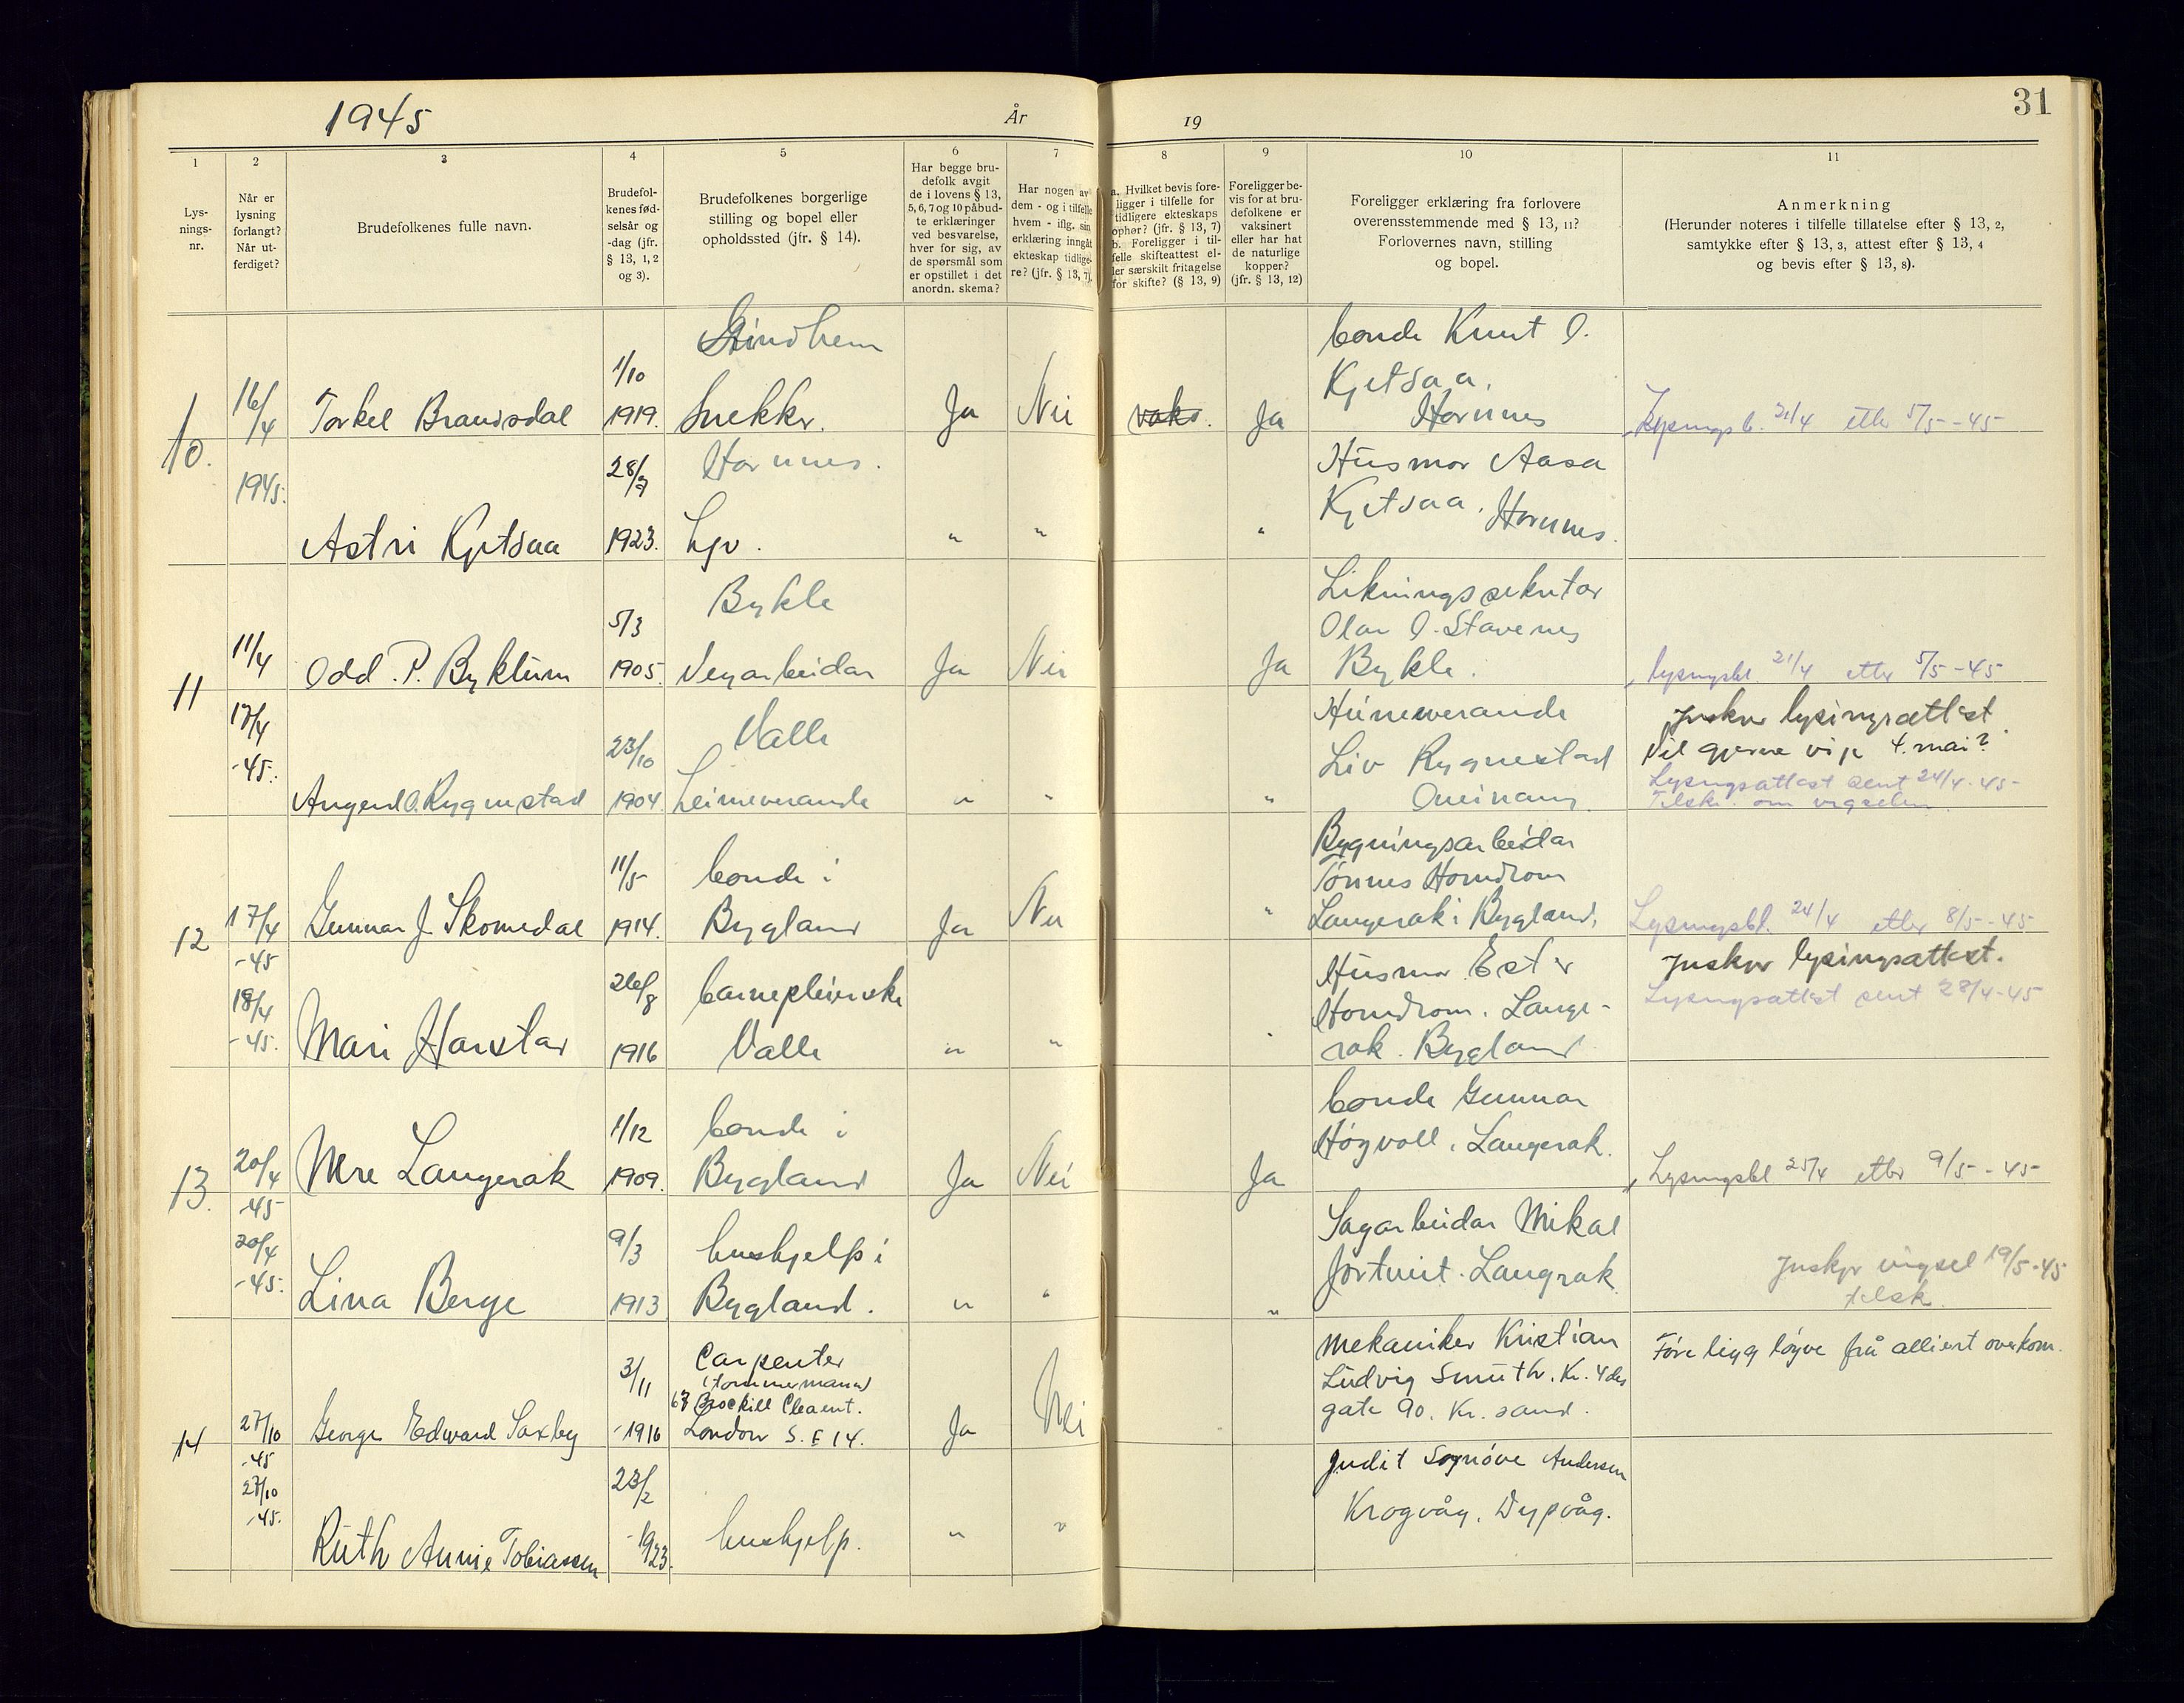 1945
År
19
31
1
Lys-
nings-
nr.
2
Når er
lysning
forlangt?
Når ut-
ferdiget?
3
Brudefolkenes fulle navn.
4
Brudefol-
kenes fød-
selsår og
-dag (jfr.
§ 13, 1, 2
og 3).
5
Brudefolkenes borgerlige
stilling og bopel eller
opholdssted (jfr. § 14).
6
Har begge bru-
defolk avgit
de i lovens § 13,
5, 6, 7 og 10 påbud-
te erklæringer
ved besvarelse,
hver for sig, av
de spørsmål som
er opstillet i det
anordn. skema?
7
Har nogen av
dem - og i tilfelle
hvem - iflg. sin
erklæring inngåt
ekteskap tidlige-
re? (jfr. § 13, 7).
8
a. Hvilket bevis fore-
ligger i tilfelle for
tidligere ekteskaps
ophør? (jfr. § 13, 7)
b. Foreligger i til-
felle skifteattest el-
ler særskilt fritagelse
for skifte? (§ 13, 9)
9
Foreligger be-
vis for at bru-
defolkene er
vaksinert
eller har hat
de naturlige
kopper?
(jfr. § 13, 12)
10
Foreligger erklæring fra forlovere
overensstemmende med § 13, 11?
Forlovernes navn, stilling
og bopel.
11
Anmerkning
(Herunder noteres i tilfelle tillatelse efter § 13, 2,
samtykke efter § 13, 3, attest efter § 13, 4
og bevis efter § 13, 8).
10.
16/4
1945.
Torkel Brandsdal
1/10
1919.
Grindheim
Snekkr.
Ja
Nei
vaks.
Ja
bonde Knut O.
Kjetsaa,
Hornnes
Lysingsb. 21/4 etter 5/5 -45
Astri Kjetsaa
28/7
1923.
Hornnes.
hjv.
"
"
"
Husmor Aasa
Kjetsaa, Hornnes.
11
11/4
17/4
-45.
Odd P. Byklum
5/3
1905.
Bykle
Vegarbeidar
Ja
Nei
Ja
Likningssekretær
Olav O. Stavenes
Bykle.
lysingsbl. 21/4 etter 5/5 -45
Angerd O. Rygnestad
23/10
1904.
Valle
heimeverande
"
"
"
Heimeverande
Liv Rygnestad
Ynskjer lysingsattest
Vil gjerne vi p. 4. mai?
Lysingsattest sent 24/4-45
Telsk. om vigselen
12
17/4
-45
18/4
-45.
Gunnar J. Skomedal
11/5
1914.
bonde i
Bygland
Ja
Nei
"
Bygningsarbeidar
Tønnes Horndrom
Langerak i Bygland.
Lysingsbl. 24/4 etter 8/5 -45
Mari Harstad
26/8
1916
barnepleierske
Valle
"
"
"
Husmor Ester
Horndrom. Lange-
rak. Bygland
Ynskjer lysingsattest.
Lysingsattest sent 28/4-45
13
20/4
-45
20/4
-45.
Nere Langerak
1/12
1909.
bonde i
Bygland
Ja
Nei
Ja
bonde Gunnar
Høgvoll, Langerak.
Lysingsbl 25/4 etter 9/5 -45
Lina Berge
9/3
1913
hushjelp i
Bygland.
"
"
"
Sagarbeidar Mikal
Langrak
Ynskjer vigsel 19/5-45
telsk.
14
27/10
-45
27/10
-45.
George Edward Saxby
3/11
-1916
Carpenter
(tømmermann)
63 Brockill Cleaent.
London S. E 14.
Ja
Nei
Mekaniker Kristian
Ludvig Smith. Kr. 4des
gate 90. Kr. sand.
Føre ligg løyve frå alliert overkom.
Ruth Annie Tobiassen
23/2
-1923.
hushjelp.
"
"
Judit Sognøve Andersen
Krogvåg, Dypvåg.